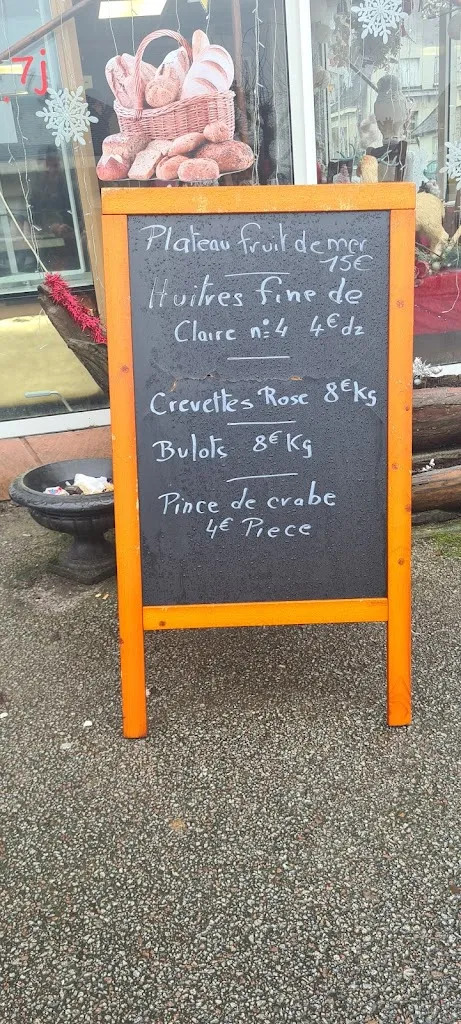 7j
Plateau fruit de mer
15€
Huitres fine de
Claire n°4 4€ dz
Crevettes Rose 8€ Kg
Bulots 8€ Kg
Pince de crabe
4€ Piece